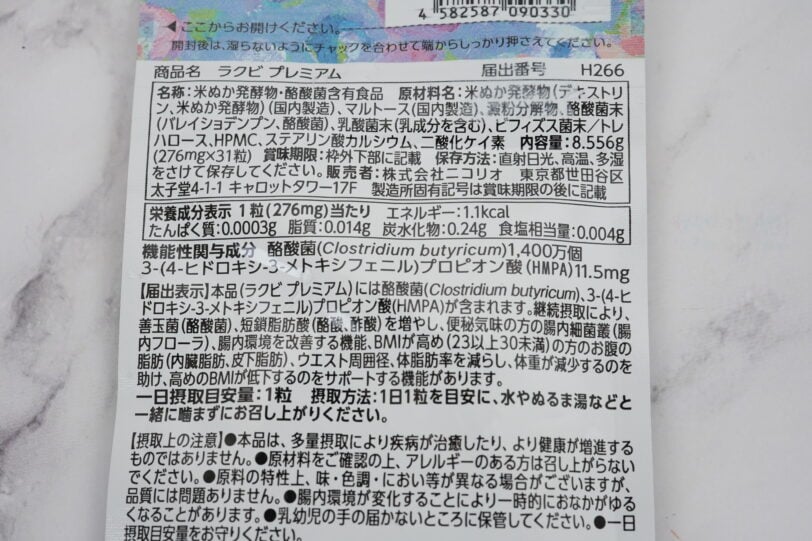 4 582587 090330
◀ここからお開けください。
開封後は、湿らないようにチャックを合わせて端からしっかり押さえてください。
商品名 ラクビ プレミアム 届出番号 H266
名称:米ぬか発酵物・酪酸菌含有食品 原材料名:米ぬか発酵物(デキストリ
ン、米ぬか発酵物)(国内製造)、マルトース(国内製造)、澱粉分解物、酪酸菌末
(バレイショデンプン、酪酸菌)、乳酸菌末(乳成分を含む)、ビフィズス菌末/トレ
ハロース、HPMC、ステアリン酸カルシウム、二酸化ケイ素 内容量:8.556g
(276mg×31粒) 賞味期限:枠外下部に記載 保存方法:直射日光、高温、多湿
をさけて保存してください。販売者:株式会社ニコリオ 東京都世田谷区
太子堂4-1-1 キャロットタワー17F 製造所固有記号は賞味期限の後に記載
栄養成分表示 1粒(276mg)当たり エネルギー:1.1kcal
たんぱく質:0.0003g 脂質:0.014g 炭水化物:0.24g 食塩相当量:0.004g
機能性関与成分 酪酸菌(Clostridium butyricum)1,400万個
3-(4-ヒドロキシ-3-メトキシフェニル)プロピオン酸(HMPA)11.5mg
【届出表示】本品(ラクビ プレミアム)には酪酸菌(Clostridium butyricum)、3-(4-ヒ
ドロキシ-3-メトキシフェニル)プロピオン酸(HMPA)が含まれます。継続摂取により、
善玉菌(酪酸菌)、短鎖脂肪酸(酪酸、酢酸)を増やし、便秘気味の方の腸内細菌叢(腸
内フローラ)、腸内環境を改善する機能、BMIが高め(23以上30未満)の方のお腹の
脂肪(内臓脂肪、皮下脂肪)、ウエスト周囲径、体脂肪率を減らし、体重が減少するのを
助け、高めのBMIが低下するのをサポートする機能があります。
一日摂取目安量:1粒 摂取方法:1日1粒を目安に、水やぬるま湯などと
一緒に噛まずにお召し上がりください。
【摂取上の注意】●本品は、多量摂取により疾病が治癒したり、より健康が増進する
ものではありません。●原材料をご確認の上、アレルギーのある方は召し上がらない
でください。●原料の特性上、味・色調・におい等が異なる場合がございますが、
品質には問題ありません。●腸内環境が変化することにより一時的におなかがゆる
くなることがあります。●乳幼児の手の届かないところに保管してください。●一日
摂取目安量をお守りください。